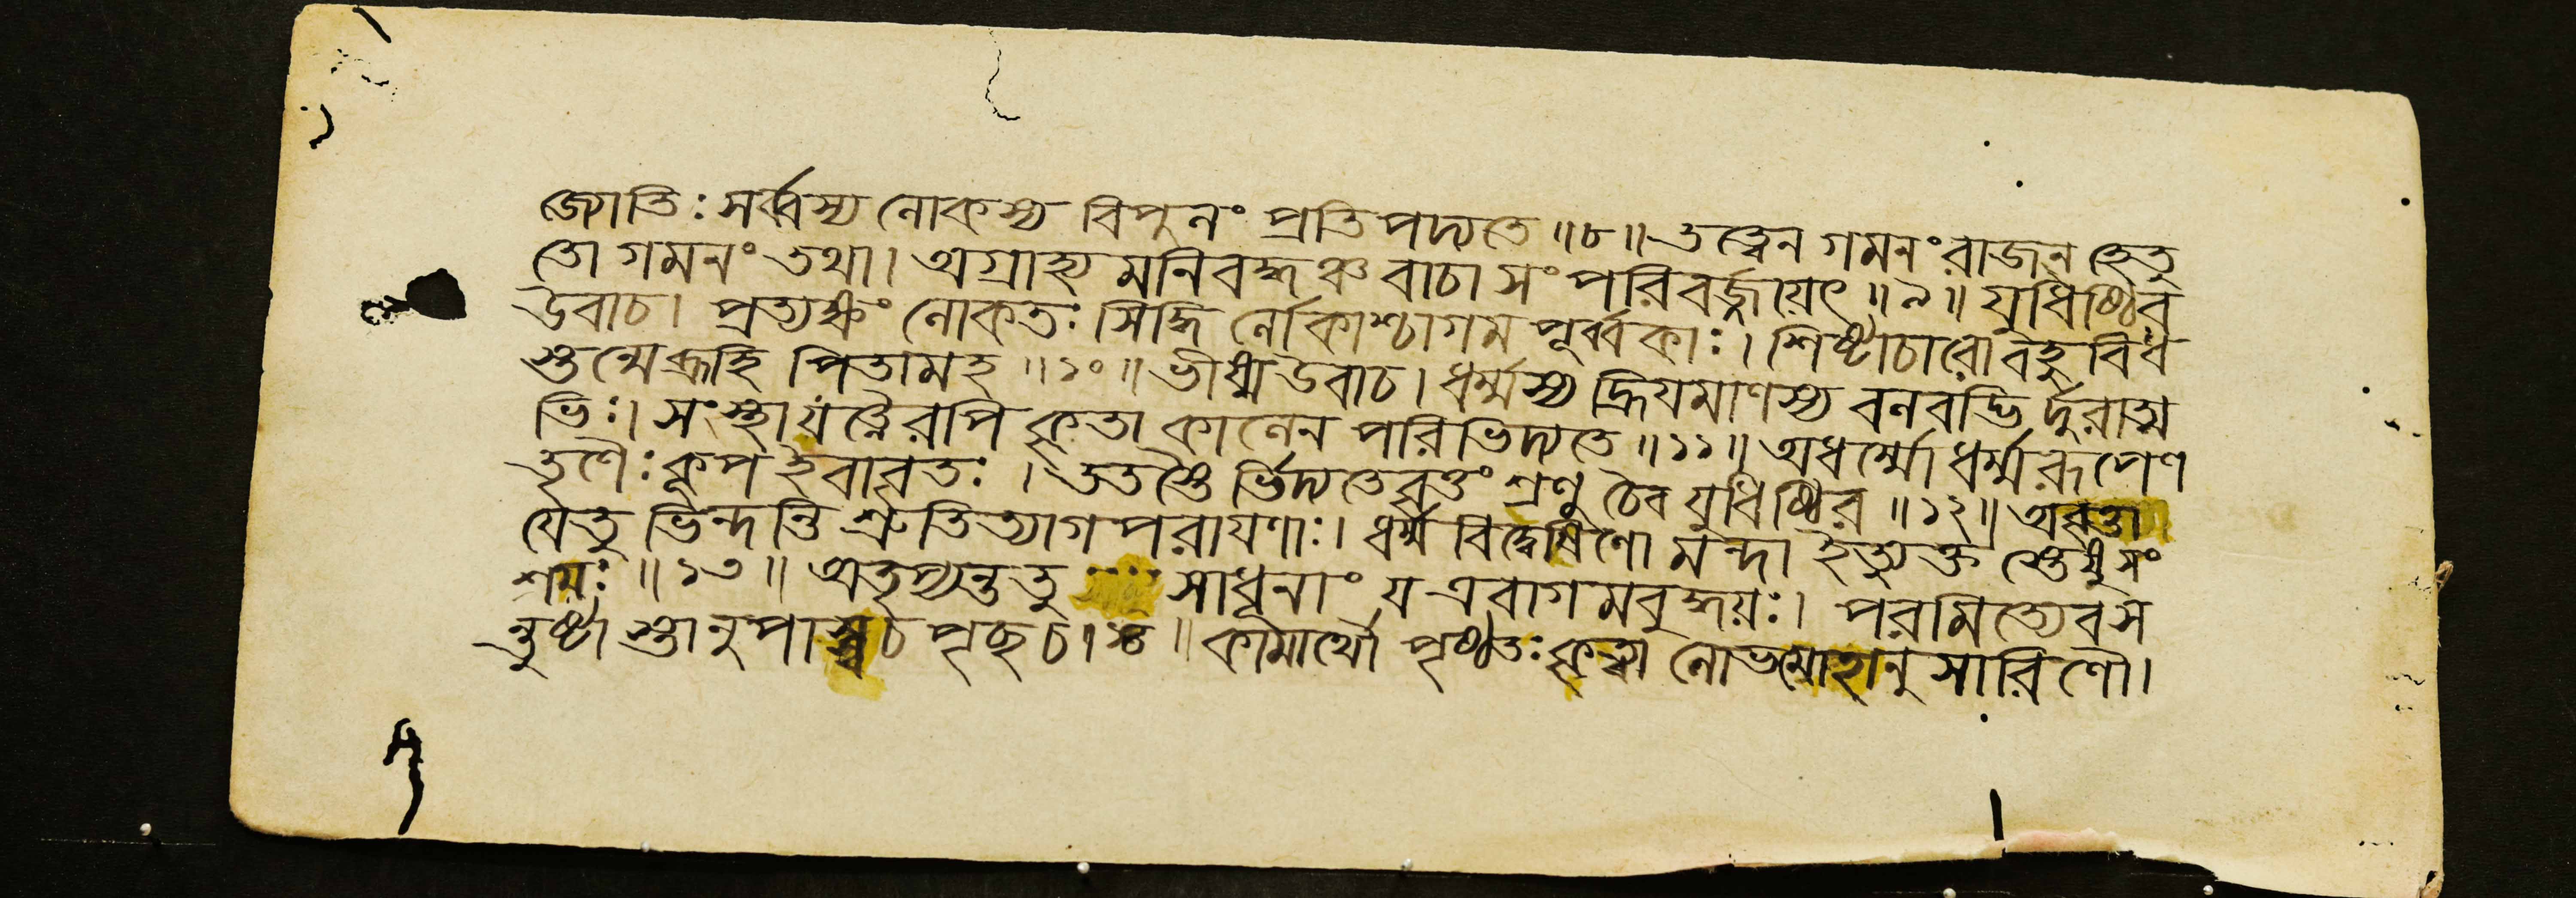 জ্যোতিঃ সর্ব্বস্য লোকস্য বিপুলং প্রতিপদ্যতে ॥৮॥ তত্ত্বেন গমনং রাজন্ হেতু
তো গমনং তথা। অগ্রাহ্য মনিবদ্ধঞ্চ বাচা সং পরিবর্জ্জয়েৎ ॥৯॥ যুধিষ্ঠির
উবাচ। প্রত্যক্ষং লোকতঃ সিদ্ধি র্লোকাশ্চাগম পূর্ব্বকাঃ। শিষ্টাচারো বহু বিধ
স্তন্মে ব্রূহি পিতামহ ॥১০॥ ভীষ্ম উবাচ। ধর্ম্মস্য হ্রিয়মাণস্য বলবদ্ভি র্দুরাত্ম
ভিঃ। সংস্থা যত্নৈরপি কৃতা কালেন পরিভিদ্যতে ॥১১॥ অধর্ম্মো ধর্ম্মরূপেণ
তৃণৈঃ কূপ ইবাবৃতঃ। ততস্তৈ র্ভিদ্যতে বৃত্তং শৃণু চৈব যুধিষ্ঠির ॥১২॥ অবৃত্তা
যেতু ভিন্দন্তি শ্রুতিত্যাগ পরায়ণাঃ। ধর্ম্ম বিদ্বেষিণো মন্দা ইত্যুক্ত স্তেষু সং
শয়ঃ ॥১৩॥ অতৃপ্যন্তস্তু সাধূনাং য এবাগমবুদ্ধয়ঃ। পরমিত্যেব স
ন্তুষ্টা স্তানুপাস্স্ব চ পৃচ্ছ চ। ১৪ ॥ কামার্থৌ পৃষ্ঠতঃ কৃত্বা লোভমোহানুসারিণৌ।